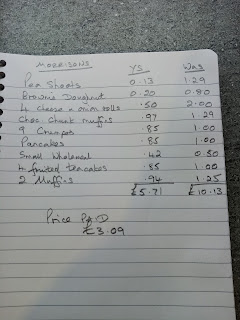 MORRISONS YS Was
Pea Shoots 0.13 1.29
Brownie Doughnut 0.20 0.80
4 cheese n onion rolls .50 2.00
Choc. Chunk muffins .97 1.29
9 Crumpets .85 1.00
Pancakes .85 1.00
Small Wholemeal .42 0.50
4 fruited teacakes .85 1.00
2 Muffins .94 1.25
£5.71 £10.13
Price Pd
£3.09